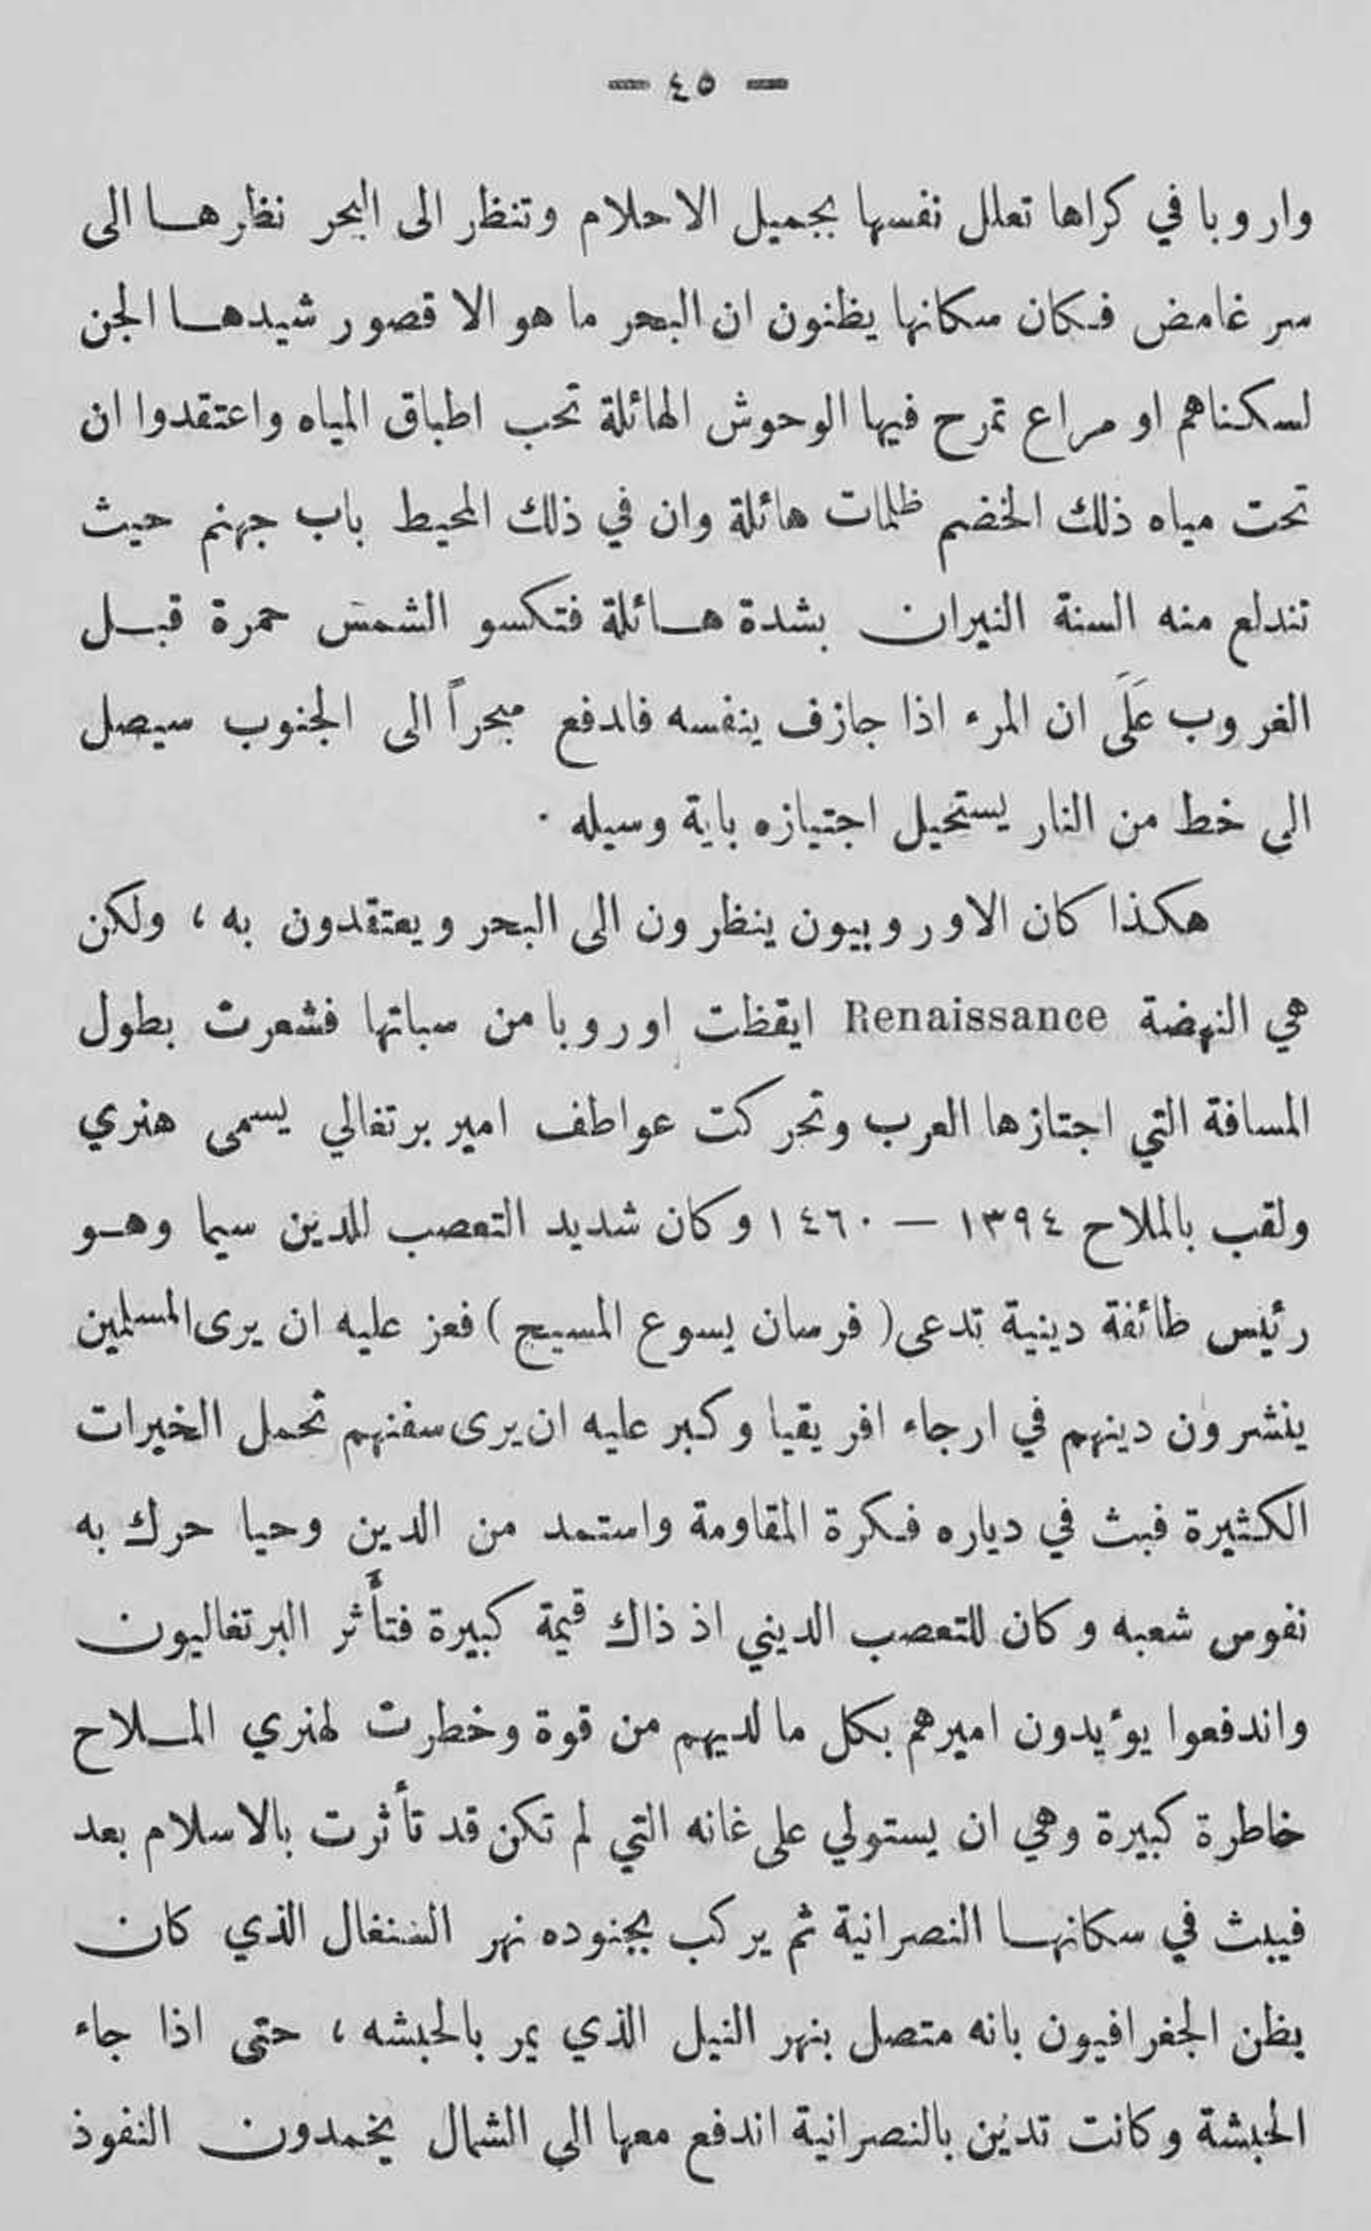 — ٤٥ —
واروبا في كراها تعلل نفسها بجميل الاحلام وتنظر الى البحر نظرهـا الى
سر غامض فكان سكانها يظنون ان البحر ما هو الا قصور شيدهـا الجن
لسكناهم او مراع تمرح فيها الوحوش الهائلة تحب اطباق المياه واعتقدوا ان
تحت مياه ذلك الخضم ظلمات هائلة وان في ذلك المحيط باب جهنم حيث
تندلع منه السنة النيران بشدة هـائلة فتكسو الشمس حمرة قبـل
الغروب عَلَى ان المرء اذا جازف ينفسه فاندفع مبحراً الى الجنوب سيصل
الى خط من النار يستحيل اجتيازه باية وسيله ·
هكذا كان الاوروبيون ينظرون الى البحر ويعتقدون به ، ولكن
هي النهضة Renaissance ايقظت اوروبا من سباتها فشعرت بطول
المسافة التي اجتازها العرب وتحركت عواطف امير برتغالي يسمى هنري
ولقب بالملاح ١٣٩٤ — ١٤٦٠ وكان شديد التعصب للدين سيما وهـو
رئيس طائفة دينية تدعى ( فرسان يسوع المسيح ) فعز عليه ان يرى المسلمين
ينشرون دينهم في ارجاء افريقيا وكبر عليه ان يرى سفنهم تحمل الخيرات
الكثيرة فبث في دياره فكرة المقاومة واستمد من الدين وحيا حرك به
نفوس شعبه وكان للتعصب الديني اذ ذاك قيمة كبيرة فتأثر البرتغاليون
واندفعوا يؤيدون اميرهم بكل ما لديهم من قوة وخطرت لهنري المـلاح
خاطرة كبيرة وهي ان يستولي على غانه التي لم تكن قد تأثرت بالاسلام بعد
فيبث في سكانهـا النصرانية ثم يركب بجنوده نهر السنغال الذي كان
يظن الجغرافيون بانه متصل بنهر النيل الذي يمر بالحبشه ، حتى اذا جاء
الحبشة وكانت تدين بالنصرانية اندفع معها الى الشمال يخمدون النفوذ